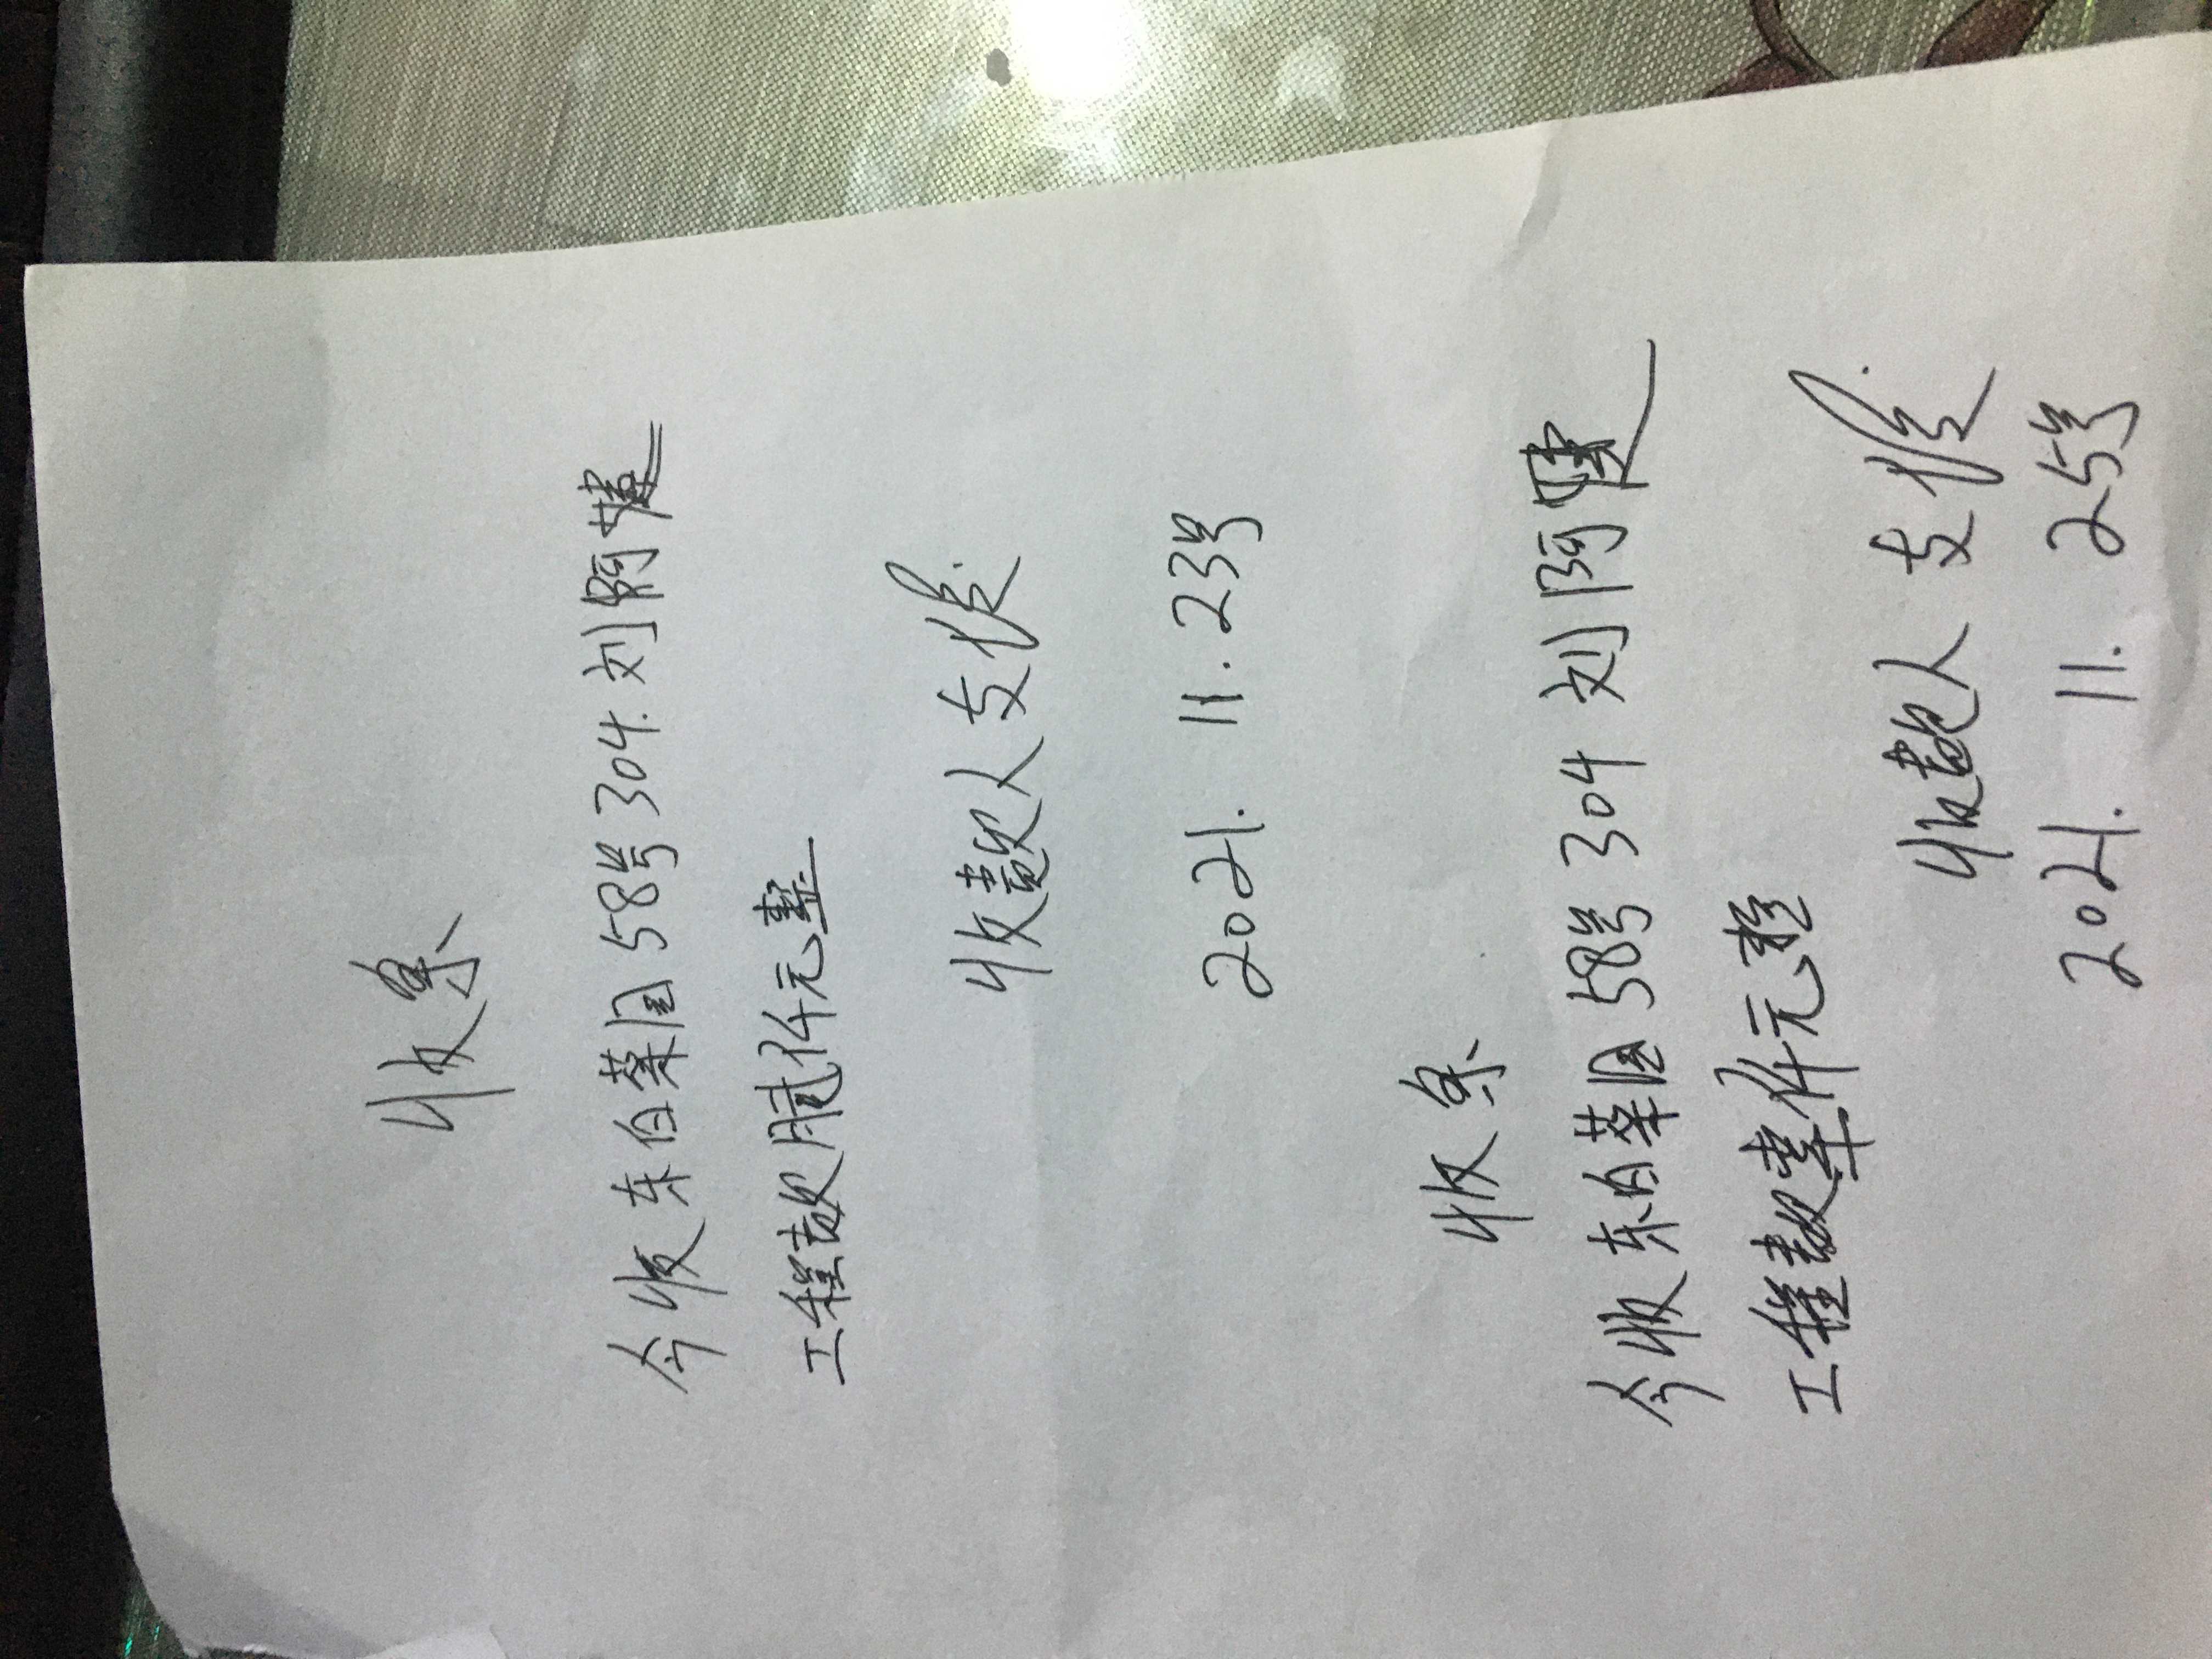 收条
今收东白菜园58号304.刘阿
工程款贰仟元整
收款人支俊
2021.11.23号
收条
今收东白菜园58号304刘阿
工程款壹仟元整
收款人支俊
2021.11.25号